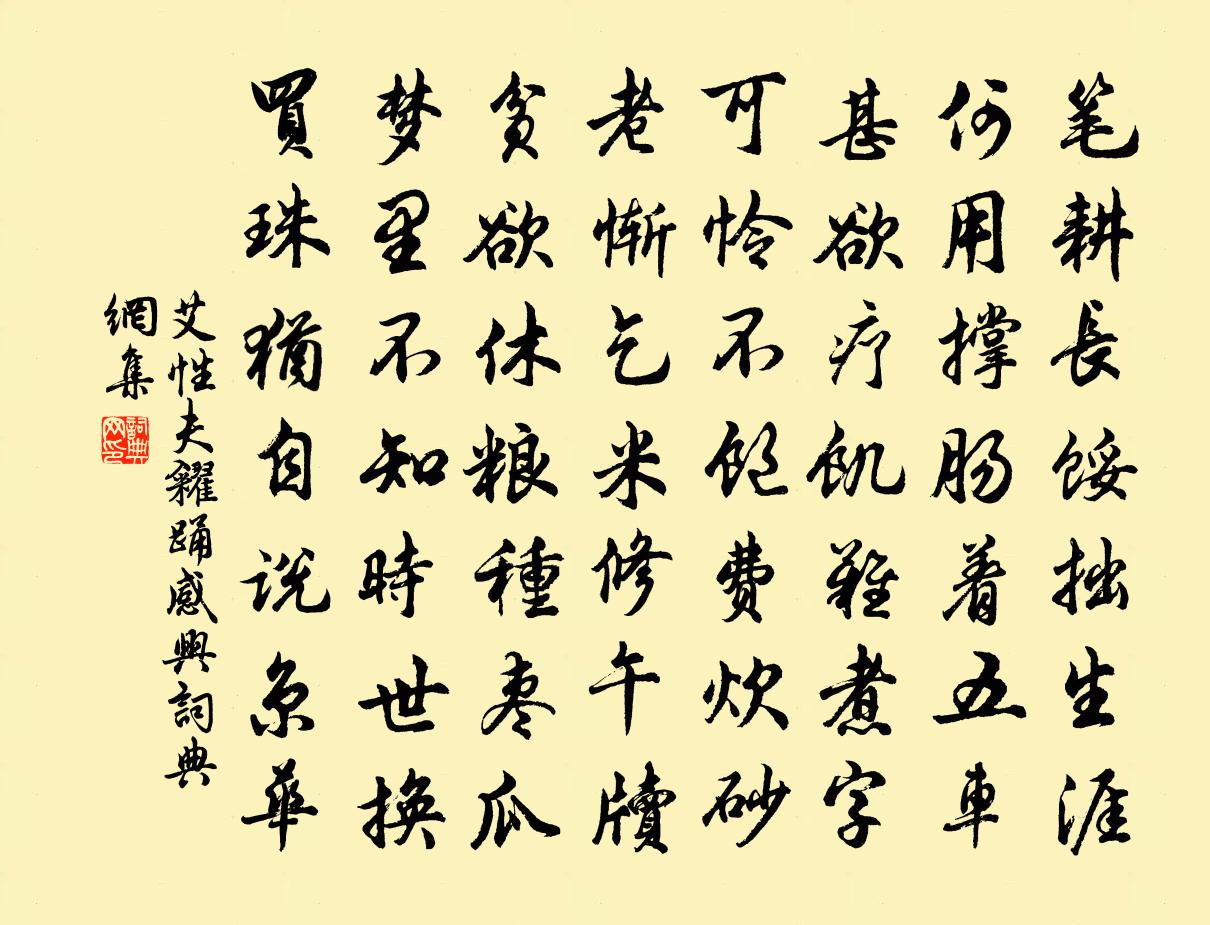 笔耕長馁拙生涯
何用撑肠着五車
甚欲疗飢難煮字
可怜不飽費炊砂
老惭乞米修午牘
貧欲休粮種枣瓜
梦里不知時世换
買珠犹自説京華
艾性夫糴踊感興詞典
網集
詞典
网印